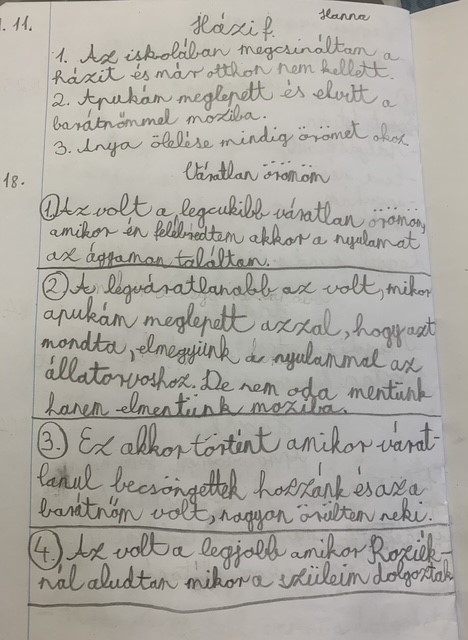 1. 11.
Házi f.
Hanna
1. Az iskolában megcsináltam a
házit és már otthon nem kellett.
2. Apukám meglepett és elvitt a
barátnőmmel moziba.
3. Anya ölelése mindig örömet okoz
18.
Váratlan örömöm
1. Az volt a legcukibb váratlan örömöm,
amikor én felébredtem akkor a nyulamat
az ágyaman találtam.
2 A legváratlanabb az volt, mikor
apukám meglepett azzal, hogy azt
mondta, elmegyünk a nyulammal az
állatorvoshoz. De nem oda mentünk
hanem elmentünk moziba.
3. Ez akkor történt amikor várat-
lanul becsöngettek hozzánk és az a
barátnőm volt, nagyon örültem neki.
4. Az volt a legjobb amikor Roziék-
nál aludtam mikor a szüleim dolgoztak